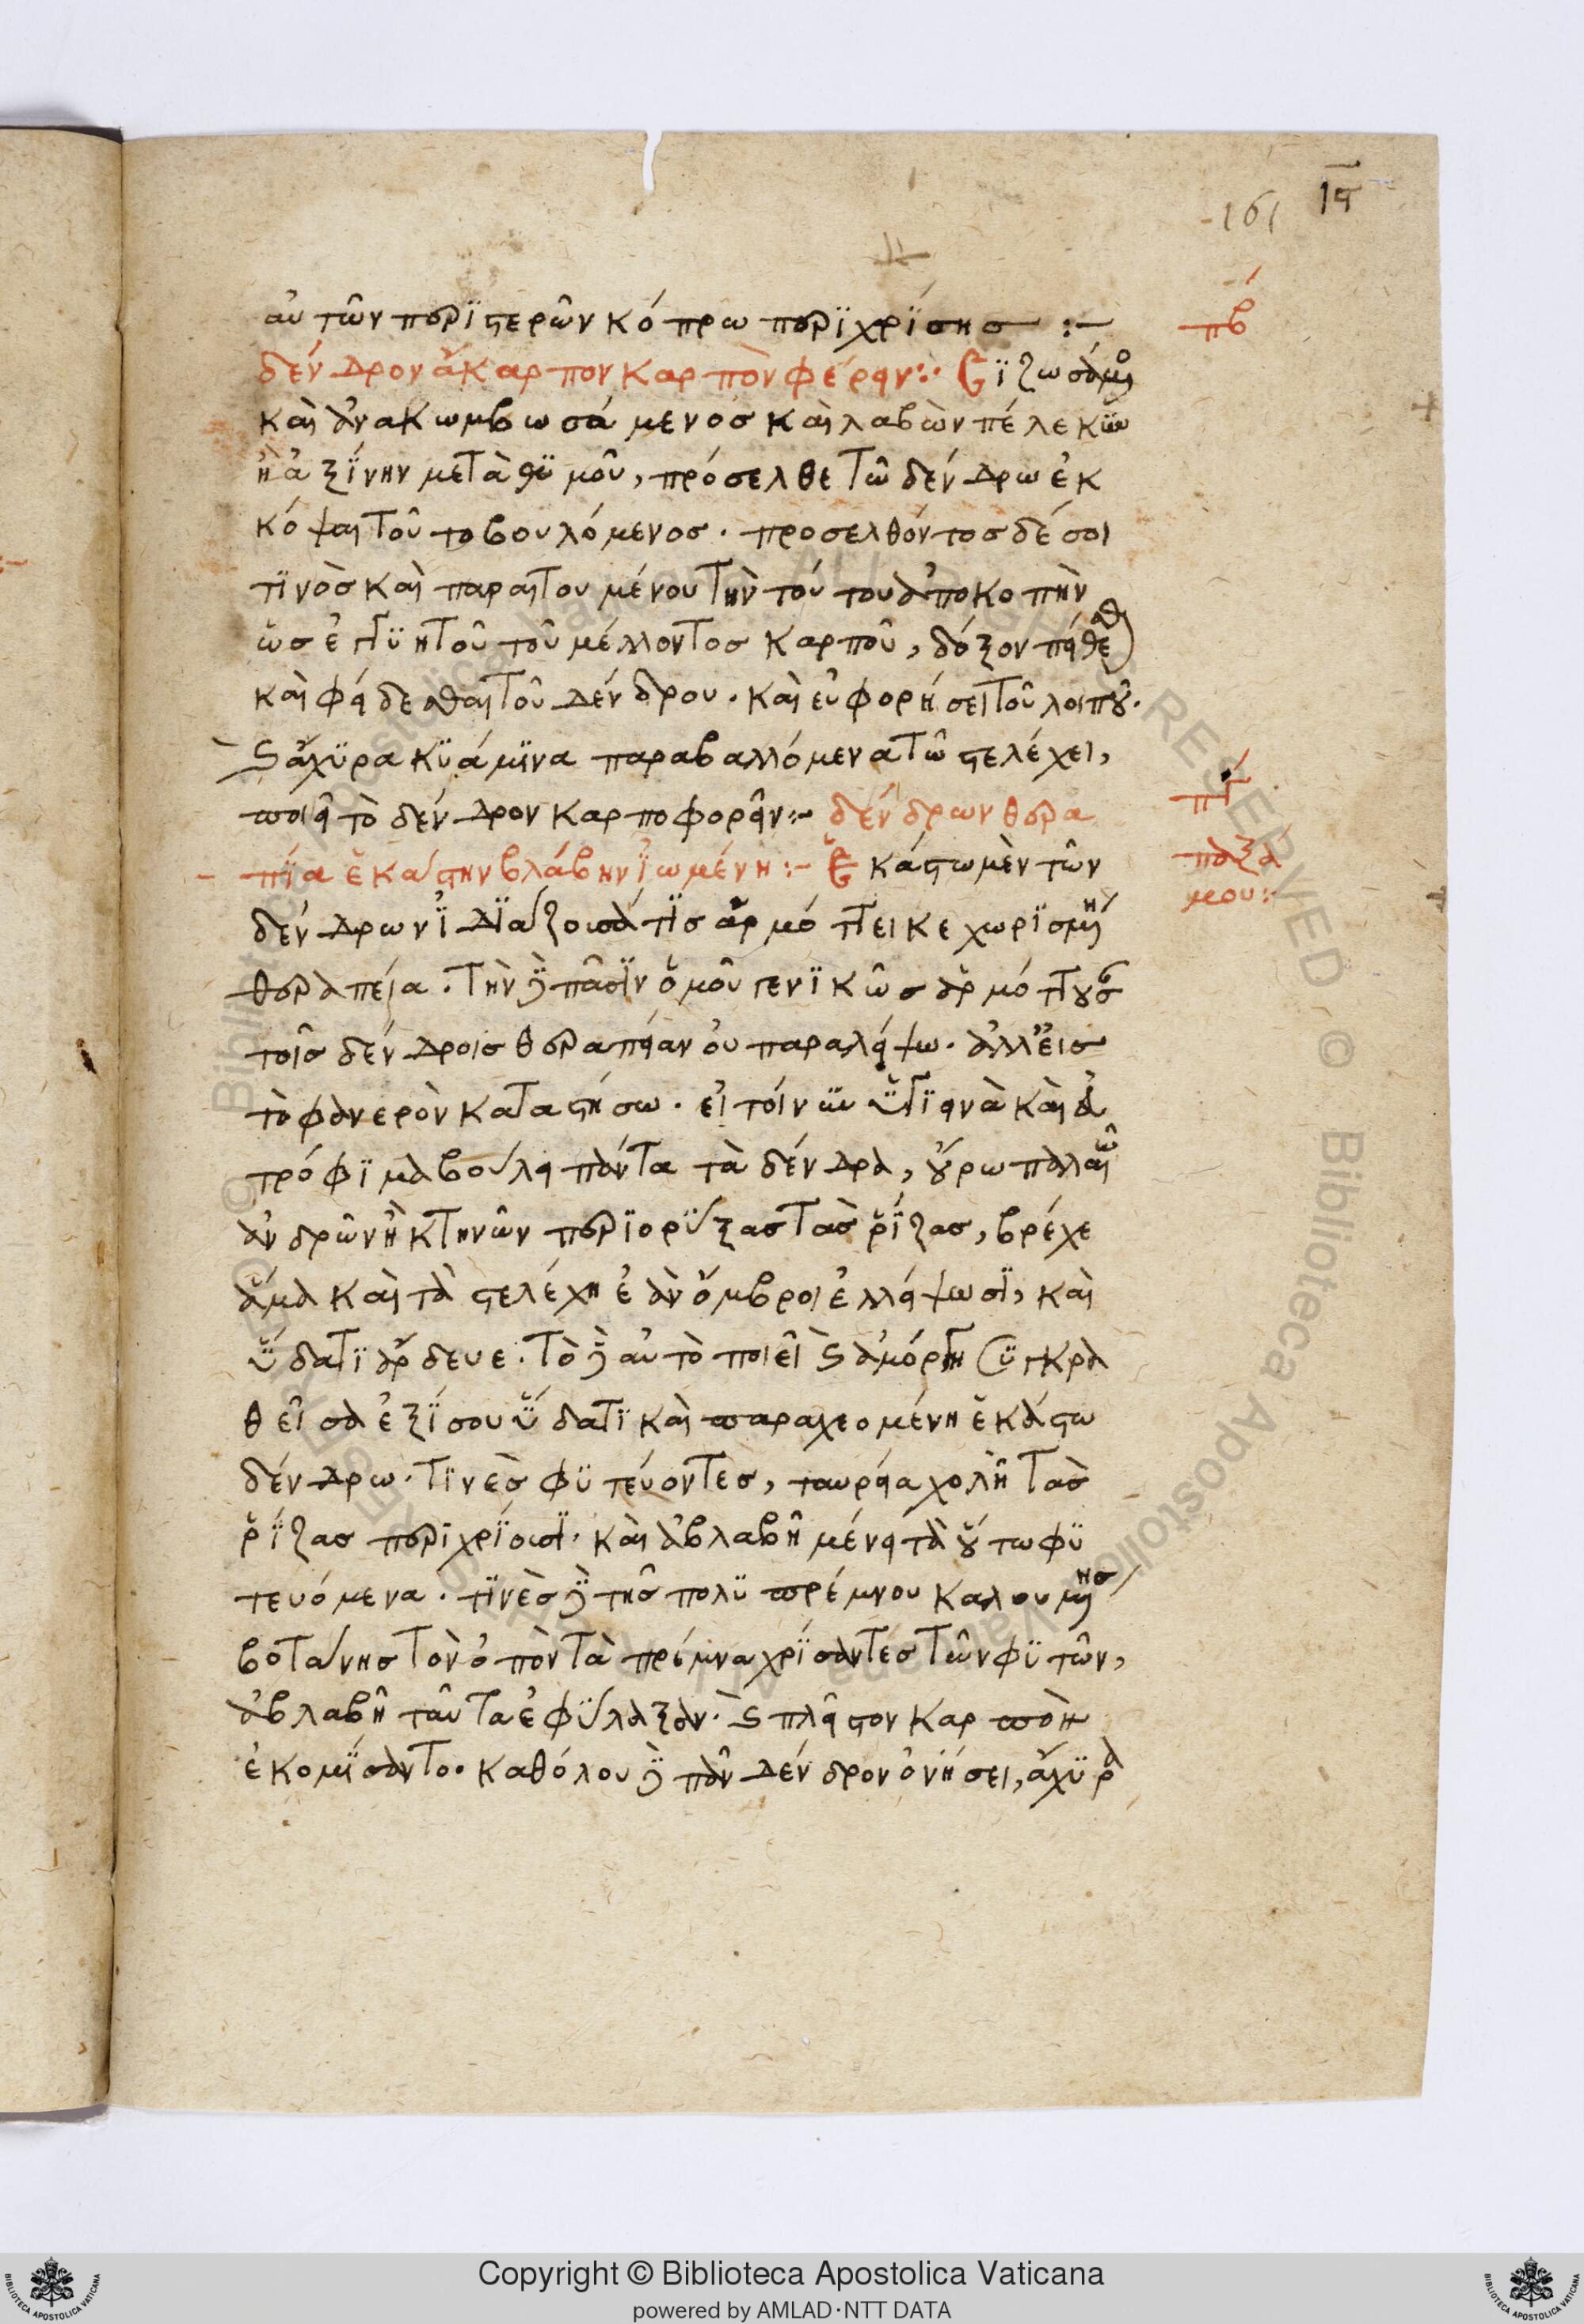 161 ις
αὐτῶν περϊστερῶν κόπρω περϊχρΐσησ :- πβ
δένδρον ἄκαρπον καρπὸν φέρειν:· Cϊζωσάμενος
καὶ ἀνακωμβωσάμενοσ καὶ λαβὼν πέλεκϋν
ἢ ἀξΐνην μετὰ θϋμοῦ, πρόσελθε τῶ δένδρω ἐκ
κόψαι τοῦτο βουλόμενοσ. προσελθόντοσ δέ σοι
τϊνὸσ καὶ παραιτουμένου τὴν τούτου ἀποκοπὴν
ὡσ ἐγγϋητοῦ τοῦ μέλλοντοσ καρποῦ, δόξον πείθεσθαι
καὶ φείδεσθαι τοῦ δένδρου. καὶ εὐφορήσει τοῦ λοιποῦ.
καὶ ἄχϋρα κϋάμϊνα παραβαλλόμενα τῶ στελέχει,
ποιεῖ τὸ δένδρον καρποφορεῖν:- δένδρων θερα πγ
πΐα ἑκάστην βλάβην ἰωμένη :- Ἑκάστω μὲν τῶν παξά
μου:-
δένδρων ἰδϊάζουσά τϊσ ἁρμόττει κεχωρϊσμένη
θεραπεία. τὴν δὲ πᾶσϊν ὁμοῦ γενϊκῶσ ἁρμόττουσαν
τοῖσ δένδροισ θεραπείαν οὐ παραλείψω. ἀλλ' εἰσ
τὸ φανερὸν καταστήσω. εἰ τοίνϋν ὑγϊεινὰ καὶ ἀ
τρόφϊμα βούλει πάντα τὰ δένδρα, οὔρω παλαιῶ
ἀνδρῶν ἢ κτηνῶν περϊορύξασ τὰσ ῥΐζασ, βρέχε
ἅμα καὶ τὰ στελέχη ἐὰν ὄμβροι ἐλλείψωσϊ, καὶ
ὕδατϊ ἄρδευε. τὸ δὲ αὐτὸ ποιεῖ καὶ ἀμόργη Cϋγκρα
θεῖσα ἐξΐσου ὕδατϊ καὶ παραχεομένη ἑκάστω
δένδρω. τϊνὲσ φϋτεύοντεσ, ταυρεία χολῆ τὰσ
ῥΐζασ περϊχρΐουσϊ. καὶ ἀβλαβῆ μένει τὰ οὕτω φϋ
τευόμενα. τϊνὲσ δὲ τῆσ πολϋπρέμνου καλουμένησ
βοτάνησ τὸν ὀπὸν τὰ πρέμνα χρΐσαντεσ τῶν φϋτῶν,
ἀβλαβῆ ταῦτα ἐφύλαξαν. καὶ πλεῖστον καρπὸν
ἐκομΐσαντο. καθόλου δὲ πᾶν δένδρον ὀνήσει, ἄχϋρα
Copyright © Biblioteca Apostolica Vaticana
powered by AMLAD·NTT DATA